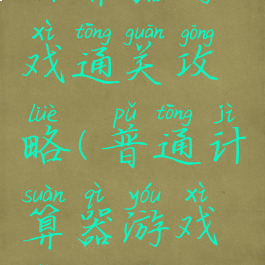 xì tōng guān gōng
戏通关攻
lüè pǔ tōng jì
略(普通计
suàn qì yóu xì
算器游戏